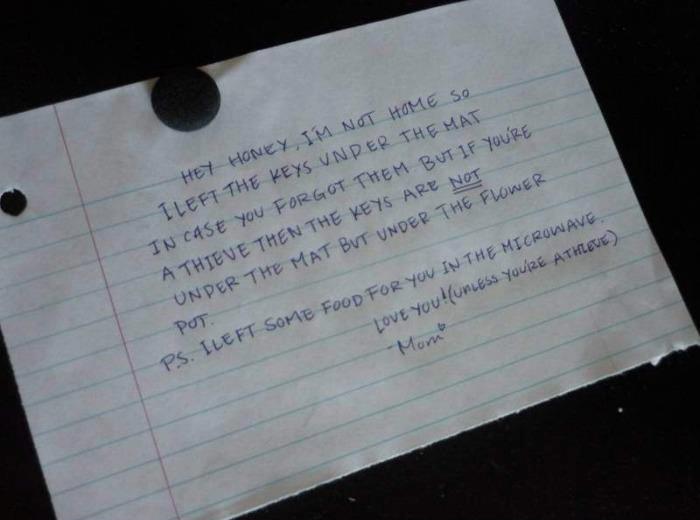 HEY HONEY, I'M NOT HOME SO
I LEFT THE KEYS UNDER THE MAT
IN CASE YOU FORGOT THEM BUT IF YOU'RE
A THIEVE THEN THE KEYS ARE NOT
UNDER THE MAT BUT UNDER THE FLOWER
POT.
P.S. I LEFT SOME FOOD FOR YOU IN THE MICROWAVE.
LOVE YOU! (UNLESS YOU'RE A THIEVE)
-Mom